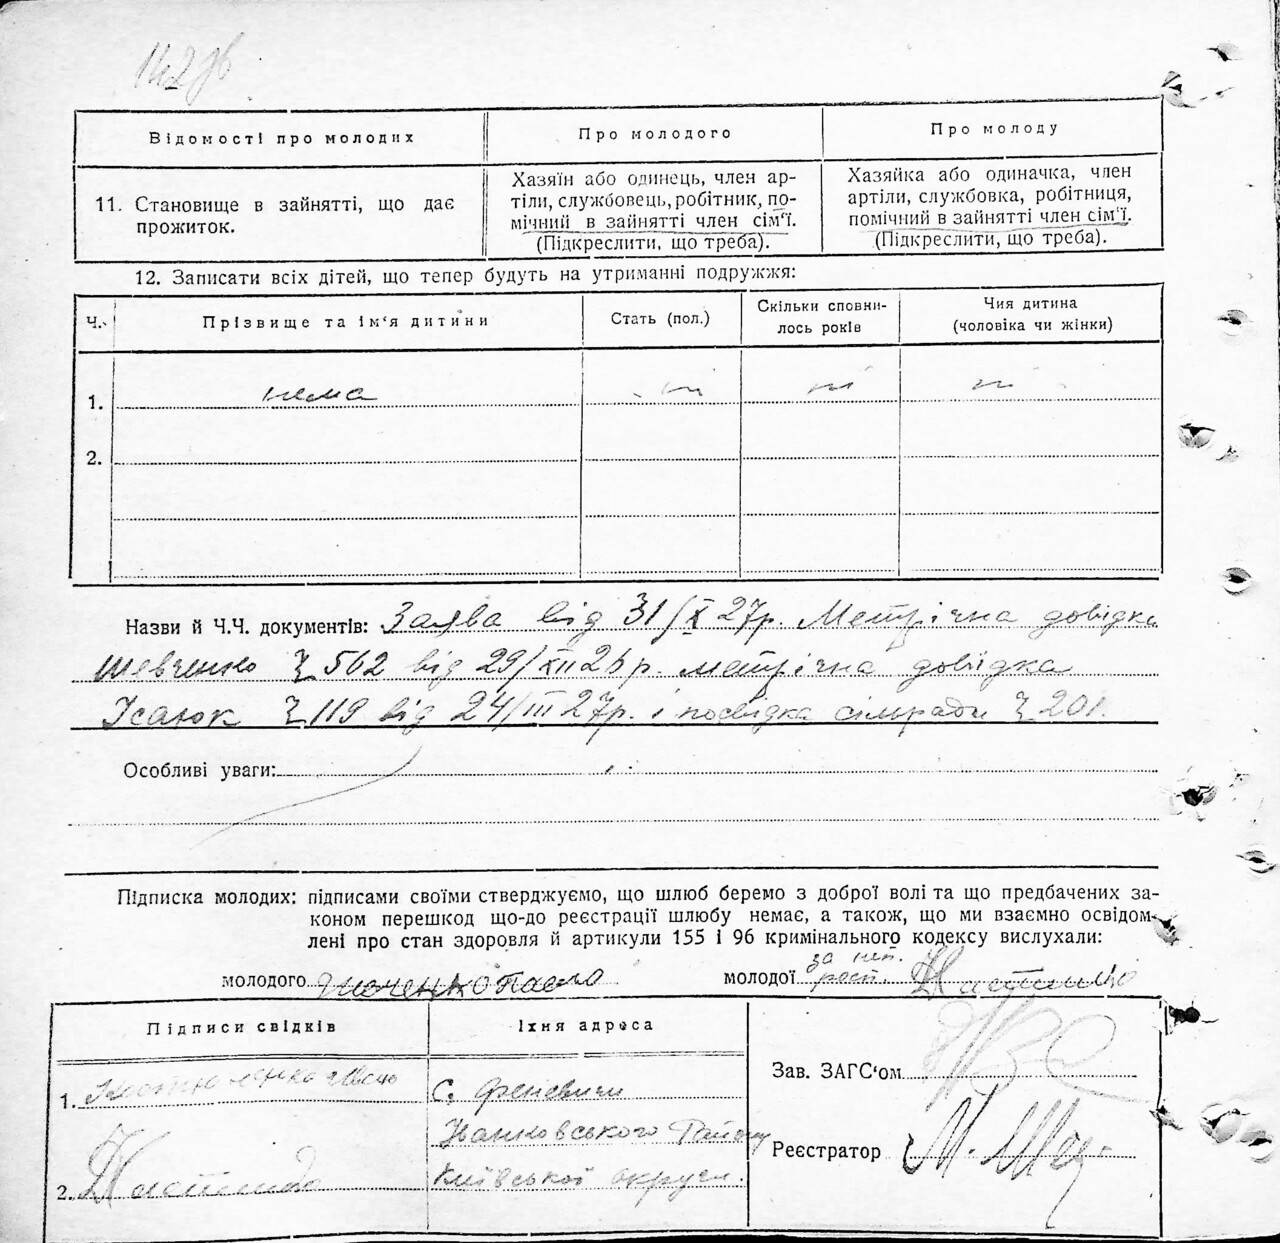 142зв
Відомості про молодих
Про молодого
Про молоду
11. Становище в зайнятті, що дає
прожиток.
Хазяїн або одинець, член ар-
тіли, службовець, робітник, по-
мічний в зайнятті член сім'ї.
(Підкреслити, що треба).
Хазяйка або одиначка, член
артіли, службовка, робітниця,
помічний в зайнятті член сім'ї.
(Підкреслити, що треба).
12. Записати всіх дітей, що тепер будуть на утриманні подружжя:
Ч.
Прізвище та ім'я дитини
Стать (пол.)
Скільки сповни-
лось років
Чия дитина
(чоловіка чи жінки)
1. нема
2.
Назви й Ч.Ч. документів: Заява від 31/X 27р. Метрічна довідка
Шевченко Ч 562 від 29/XII 26 р. метрічна довідка
Ісаюк Ч 119 від 24/III 27р. і посвідка сільради Ч 201.
Особливі уваги:
Підписка молодих: підписами своїми стверджуємо, що шлюб беремо з доброї волі та що предбачених за-
коном перешкод що-до реєстрації шлюбу немає, а також, що ми взаємно освідом-
лені про стан здоровля й артикули 155 і 96 кримінального кодексу вислухали:
молодого
молодої за неп.
Підписи свідків
Їхня адреса
1.
с. Феневичи
Іванковського Району
Київської округи.
2.
Зав. ЗАГС'ом
Реєстратор